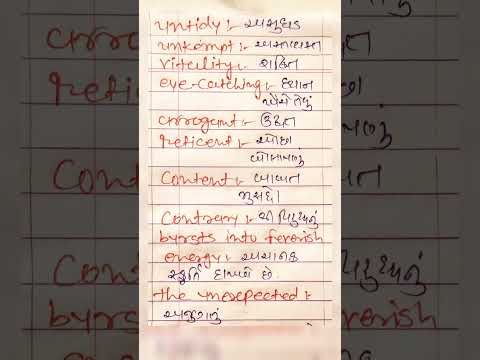 untidy :- અસુઘડ
unkempt :- અસ્તવ્યસ્ત
vitality :- શક્તિ
eye-catching :- ધ્યાન
ખેંચે તેવું
arrogant :- ઉદ્ધત
reticent :- ઓછા
બોલાપણું
Content :-
Contrary :-
bursts into feverish
energy :- અચાનક
સ્ફૂર્તિ દાખવે છે
the unexpected :-
અજુગતું